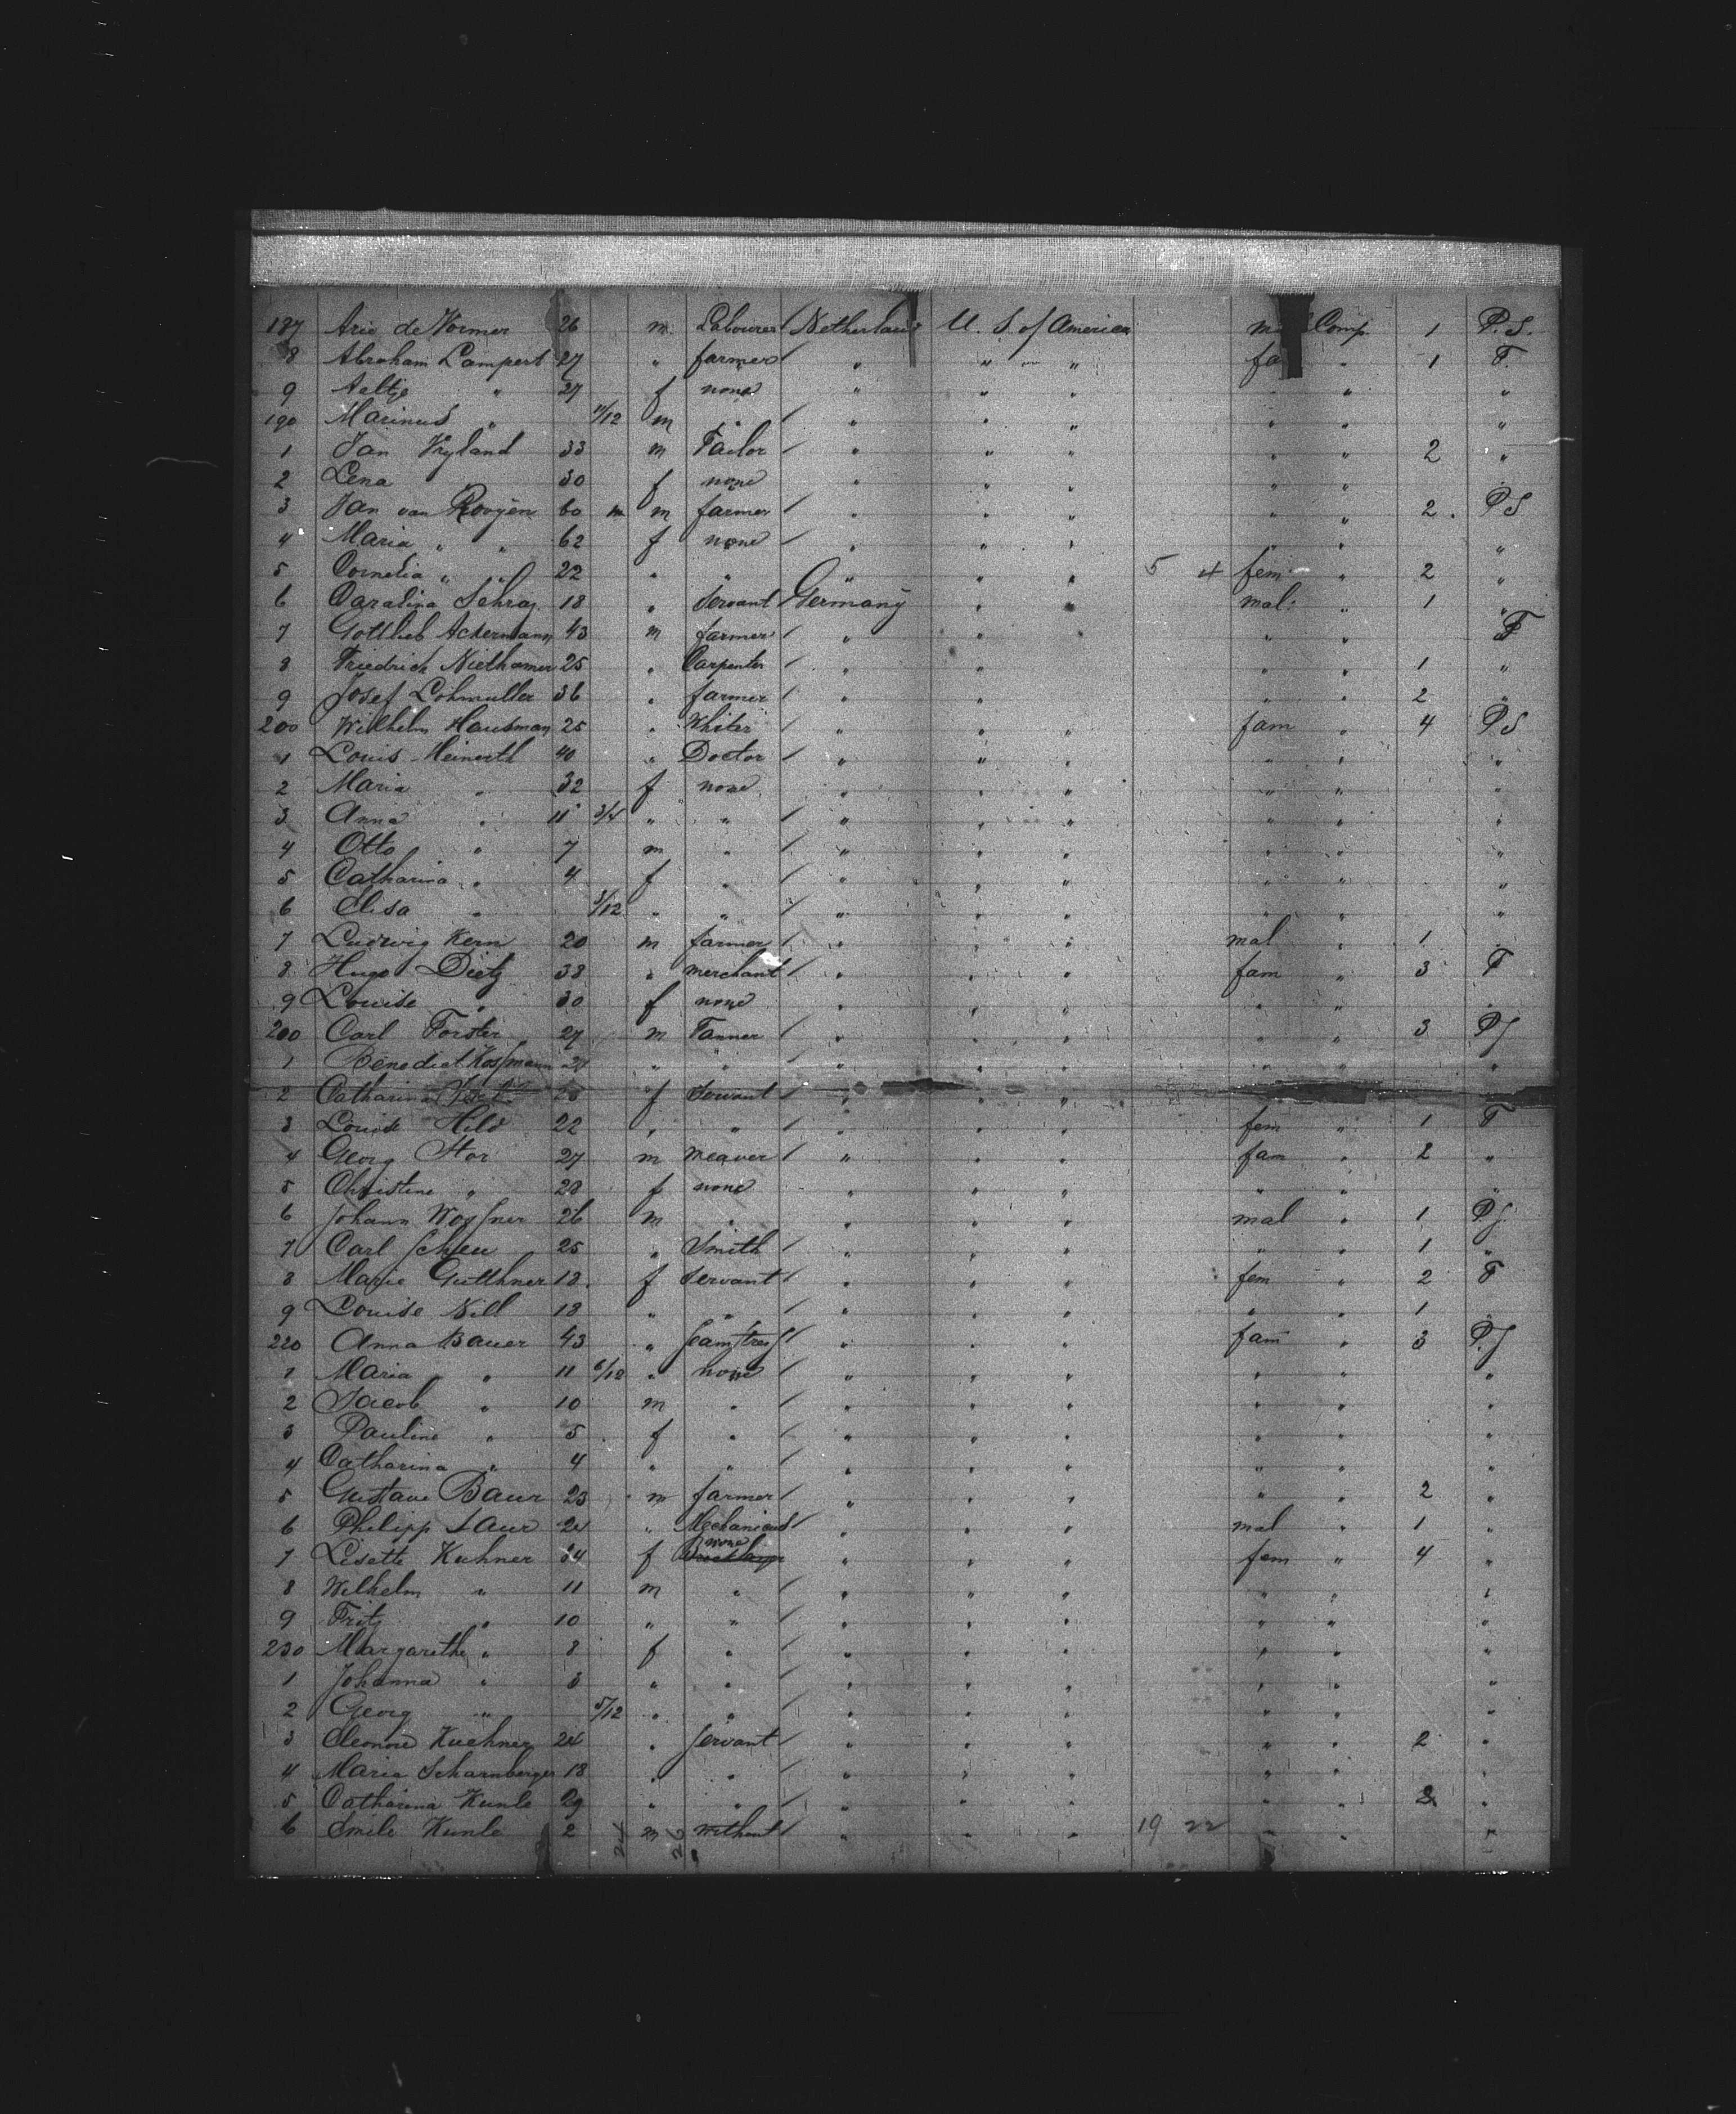 187 Arie de Wormer 26 m. Labourer Netherland U. S. of America Comp. 1 P. S.
8 Abraham Lampert 27 " farmer " " " fa " 1 F.
9 Aeltje " 27 f none " " " " " "
190 Marinus " 11/12 m " " " " " " "
1 Jan Vryland 33 m Tailor " " " " " 2 "
2 Lena 30 f none " " " " " "
3 Jan van Rooyen 60 m m farmer " " " " " 2 . P S
4 Maria " " 62 f none " " " " " "
5 Cornelia " " 22 " " " " " 5 4 fem " 2 "
6 Caralina Schrag. 18 " Servant Germany " " mal: " 1 "
7 Gottlieb Ackermann 43 m farmer " " " " F
8 Friedrich Niethamer 25 " Carpenter " " " " 1 "
9 Josef Lohmuller 36 " farmer " " " " " 2 "
200 Wilhelm Hausman 25 " " " " fam " 4 P S
1 Louis Meinerth 40 " Doctor " " " " " "
2 Maria " 32 f none " " " " " "
3 Anna " 11 3/4 " " " " " " " "
4 Otto " 7 m " " " " " " "
5 Catharina " 4 f " " " " " " "
6 Elisa " 3/12 " " " " " " " "
7 Ludwig Kern 20 m farmer " " " mal " 1 "
8 Hugo Dietz 38 " merchant " " " fam " 3 F
9 Louise " 30 f none " " " " " "
200 Carl Forster 27 m Tanner " " " " " 3 P S
1 Benedict Kossmann 27 " " " " " " " "
2 Catharina f Servant " " "
3 Louise Hild 22 " " " " " fem " 1 F
4 Georg Stor 27 m weaver " " " fam " 2 "
5 Christine " 28 f none " " " " " "
6 Johann Wossner 26 m " " " " mal " 1 P S
7 Carl Scheu 25 " Smith " " " " " 1 "
8 Marie Gutthner 18. f Servant " " " fem " 2 F
9 Louise Nill 18 " " " " " " " 1 "
220 Anna Bauer 43 " Seamstress " " " fam " 3 P. S
1 Maria " 11 6/12 " none " " " " " "
2 Jacob " 10 m " " " " " " "
3 Pauline " 5 f " " " " " " "
4 Catharina " 4 " " " " " " " "
5 Gustave Baur 23 m farmer " " " " " 2 "
6 Philipp Laur 24 " Mechanicus " " " mal " 1 "
7 Lisette Kuhner 34 f none " " " fem " 4 "
8 Wilhelm " 11 m " " " " " " "
9 Fritz " 10 " " " " " " " "
230 Margarethe " 8 f " " " " " " "
1 Johanna " 3 " " " " " " " "
2 Georg " 5/12 " " " " " " " "
3 Eleonore Kuehner 24 " Servant " " " " " 2 "
4 Maria Scharnberger 18 " " " " " " " "
5 Catharina Kunle 29 " " " " " " " 2 "
6 Emile Kunle 2 m without " " " 19 22 " " "
24 26